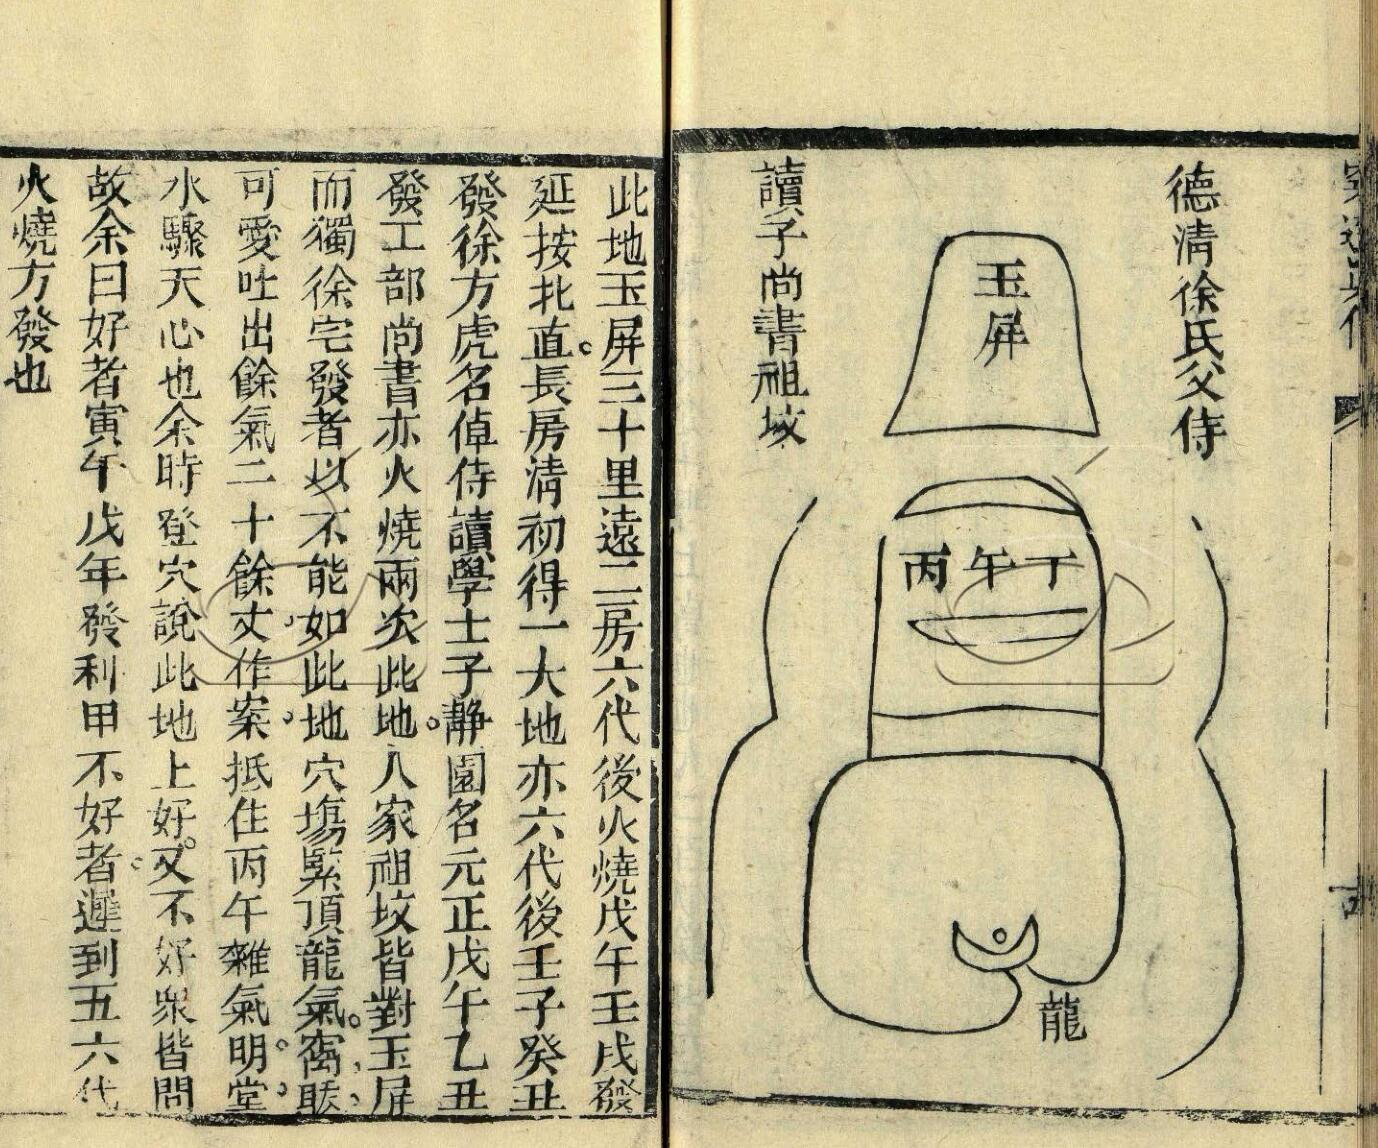 德清徐氏父侍
玉屏
丙午丁
龍
讀子尚書祖坟
此地玉屏三十里遠二房六代後火燒戊午壬戌發
延按北直長房清初得一大地亦六代後壬子癸丑
發徐方虎名倬侍讀學士子靜園名元正戊午乙丑
發工部尚書亦火燒兩次此地人家祖坟皆對玉屏
而獨徐宅發者以不能如此地穴塲緊頂龍氣窩
可愛吐出餘氣二十餘丈作案抵住丙午雜氣明堂
水驟天心也余時登穴說此地上好又不好衆皆問
故余曰好者寅午戌年發利甲不好者遲到五六代
火燒方發也